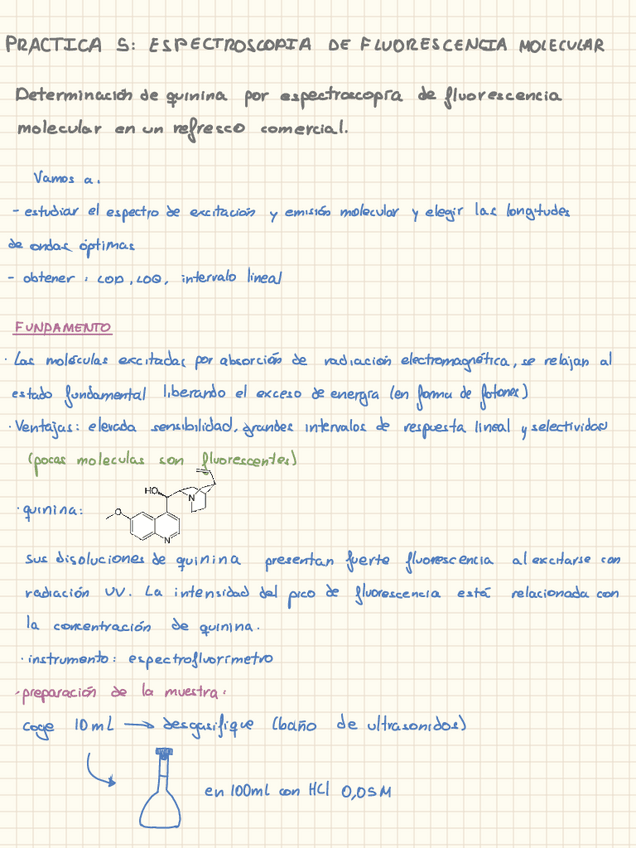 PRACTICA 5: ESPECTROSCOPIA DE FLUORESCENCIA MOLECULAR
Determinación de quinina por espectroscopía de fluorescencia
molecular en un refresco comercial.
Vamos a:
- estudiar el espectro de excitación y emisión molecular y elegir las longitudes
de ondas óptimas
- obtener: LOD, LOQ, intervalo lineal
FUNDAMENTO
· Las moléculas excitadas por absorción de radiación electromagnética, se relajan al
estado fundamental liberando el exceso de energía (en forma de fotones)
· Ventajas: elevada sensibilidad, grandes intervalos de respuesta lineal y selectividad
(pocas moleculas son fluorescentes)
HO
N
· quinina:
O
N
sus disoluciones de quinina presentan fuerte fluorescencia al excitarse con
radiación UV. La intensidad del pico de fluorescencia está relacionada con
la concentración de quinina.
· instrumento: espectrofluorímetro
· preparación de la muestra:
coge 10 mL → desgasifique (baño de ultrasonidos)
en 100mL con HCl 0,05M